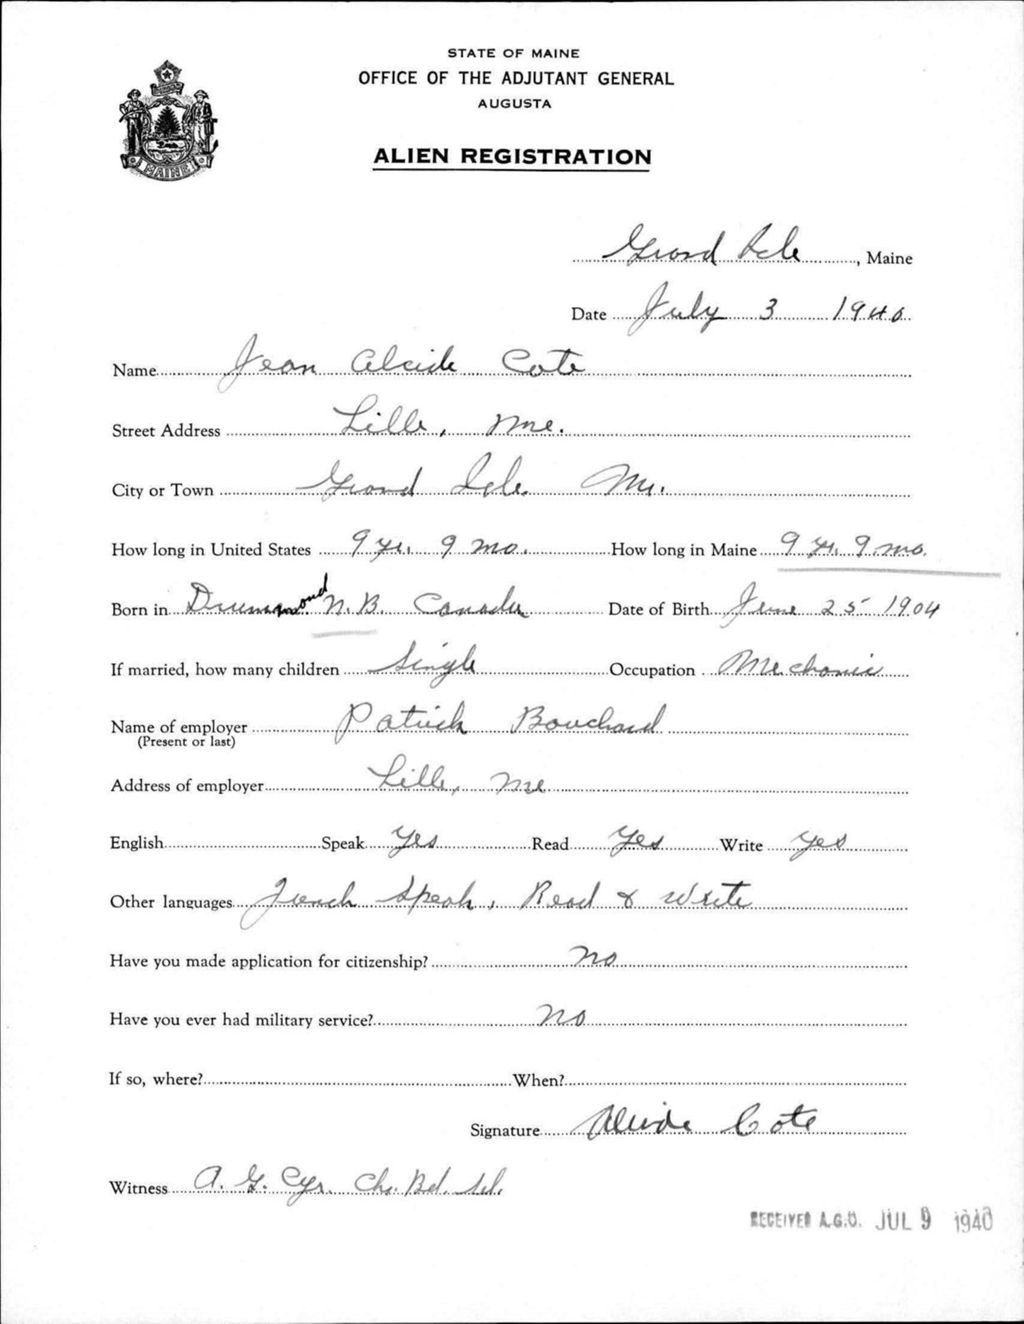 STATE OF MAINE
OFFICE OF THE ADJUTANT GENERAL
AUGUSTA
MAINE
ALIEN REGISTRATION
Grand Isle, Maine
Date July 3 1940
Name Jean Alcide Cote
Street Address Lille, Me.
City or Town Grand Isle Me.
How long in United States 9 yr. 9 mo. How long in Maine 9 yr. 9 mo.
Born in Drummond N.B. Canada Date of Birth June 25 1904
If married, how many children Single Occupation Mechanic
Name of employer Patrick Bouchard
(Present or last)
Address of employer Lille, Me
English Speak Yes Read Yes Write Yes
Other languages French Speak, Read & Write
Have you made application for citizenship? No
Have you ever had military service? No
If so, where? When?
Signature Alcide Cote
Witness A. G. Cyr. Ch. Bd. Sel.
RECEIVED A.G.O. JUL 9 1940